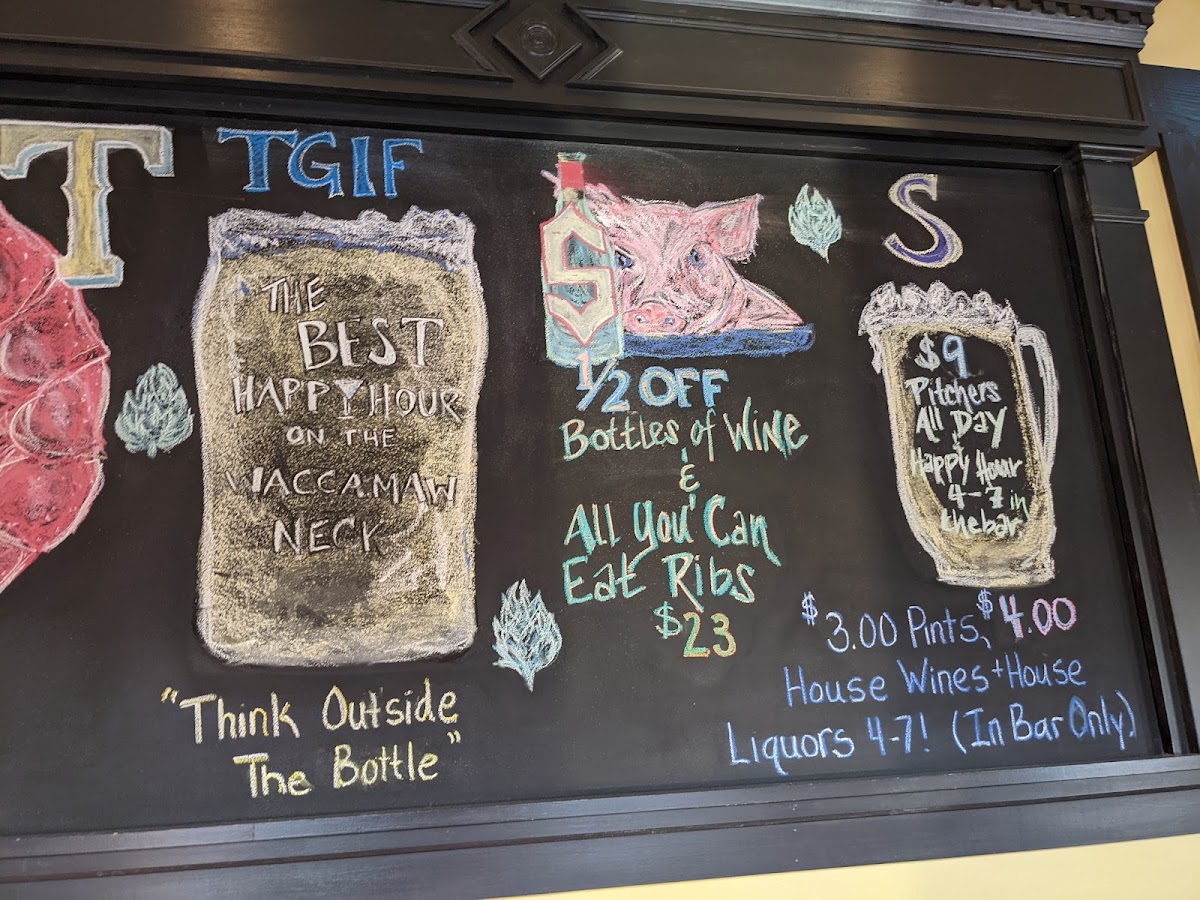 T
TGIF
THE
BEST
HAPPY HOUR
ON THE
WACCAMAW
NECK
"Think Outside
The Bottle"
S
1/2 OFF
Bottles of Wine
&
All You Can
Eat Ribs
$23
S
$9
Pitchers
All Day
&
Happy Hour
4-7 in
the bar
$3.00 Pints, $4.00
House Wines + House
Liquors 4-7! (In Bar Only)